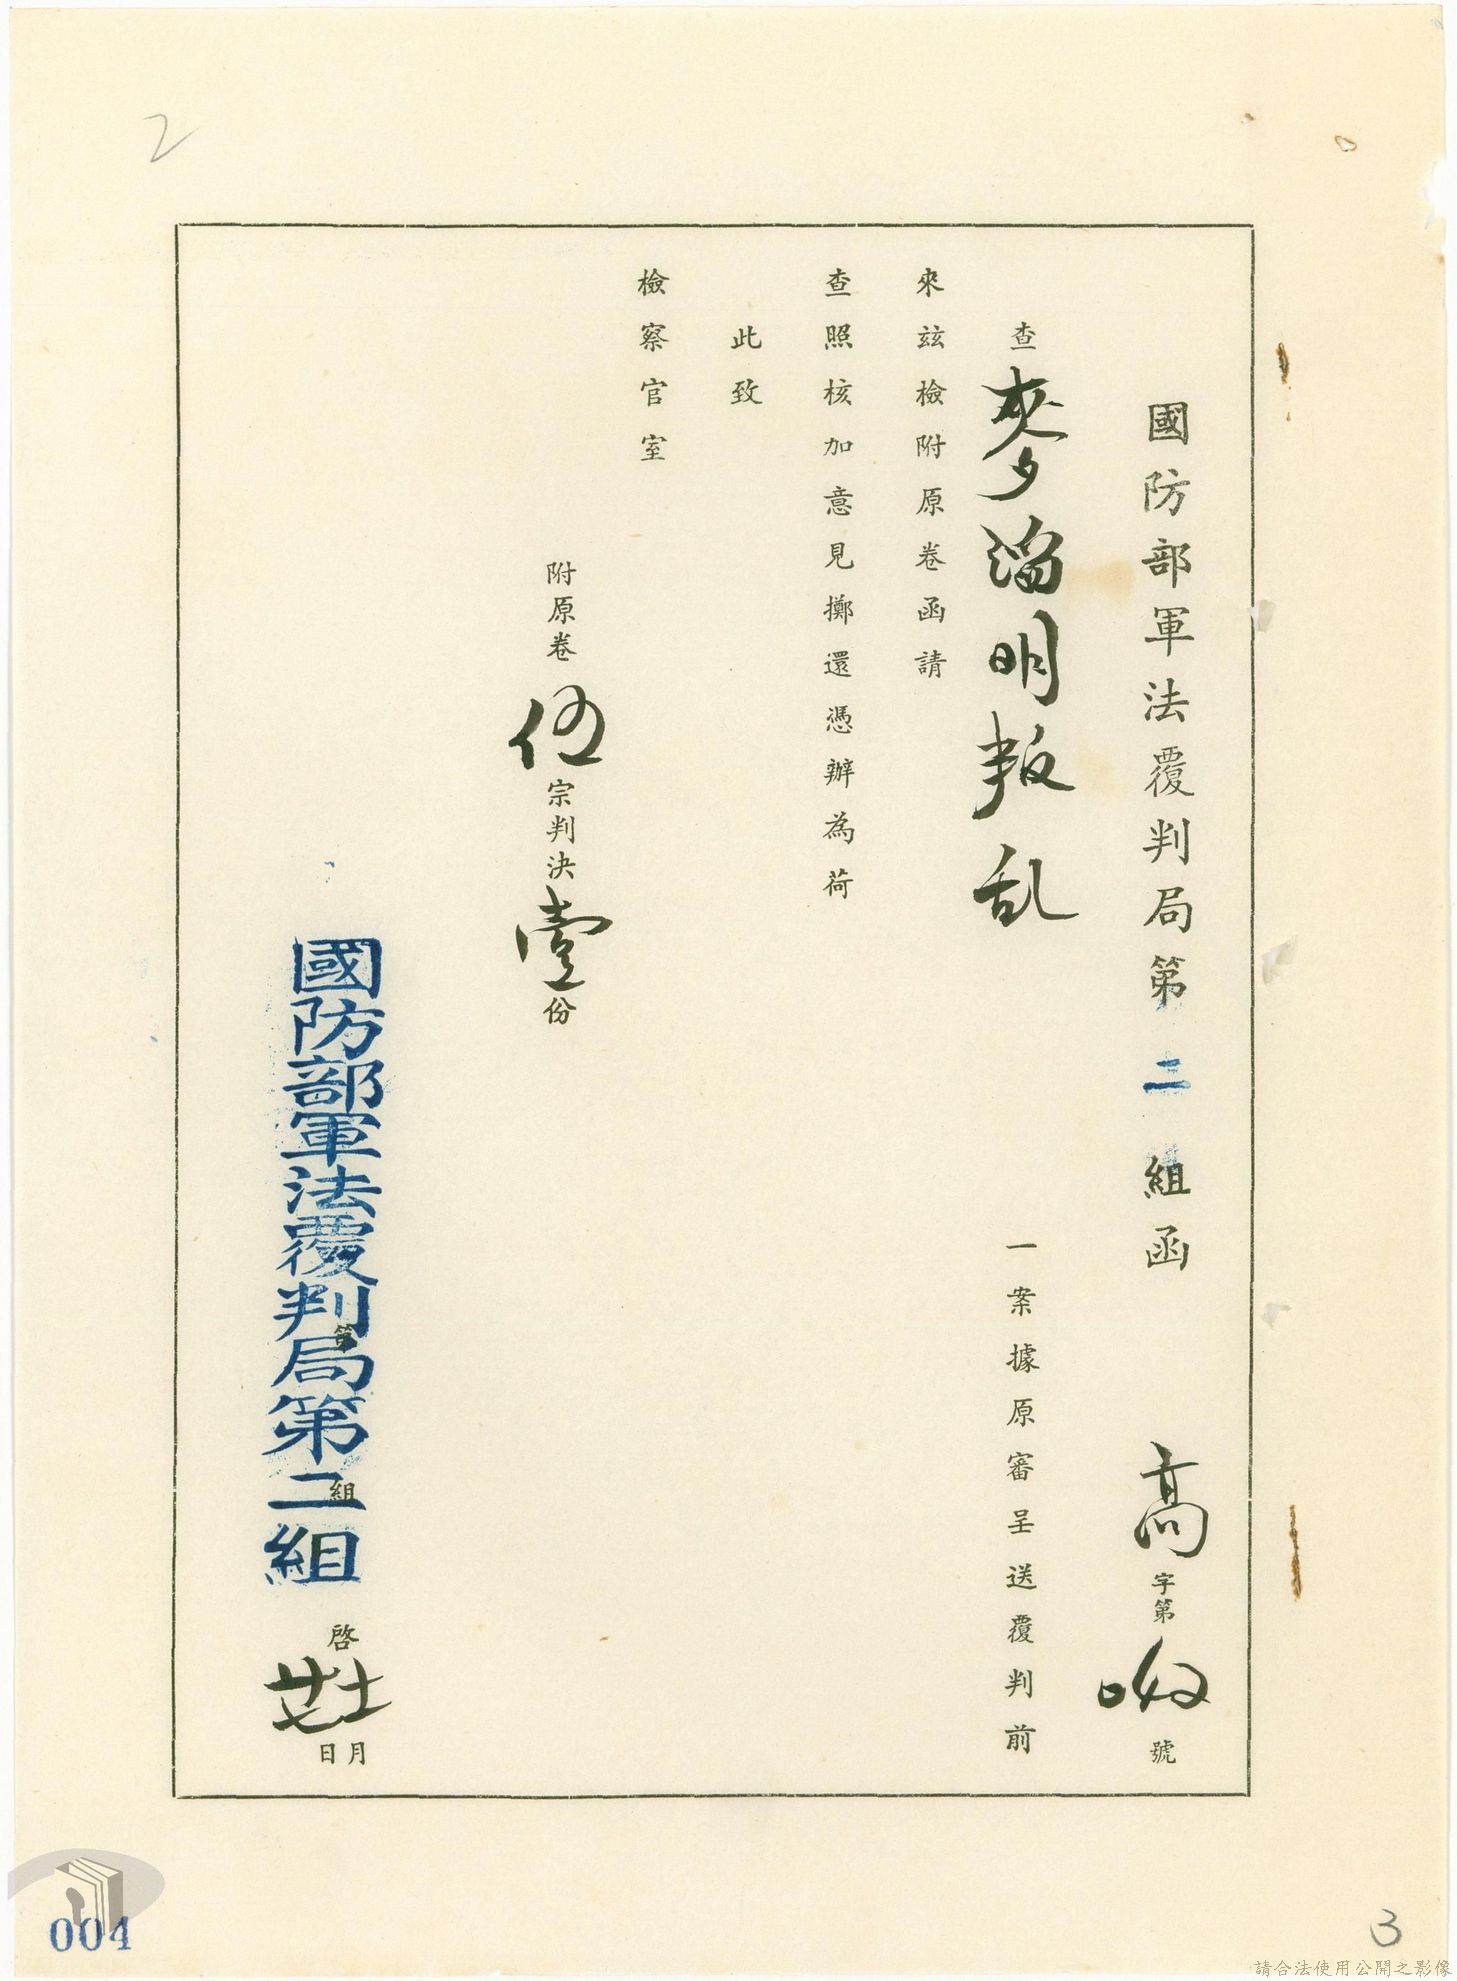 2
國防部軍法覆判局第二組函 高字第號
查麥瀹明叛乱一案據原審呈送覆判前
來茲檢附原卷函請
查照核加意見擲還憑辦為荷
此致
檢察官室
附原卷伍宗判決壹份
國防部軍法覆判局第二組
第 組 啓 月 日
004
3
請合法使用公開之影像